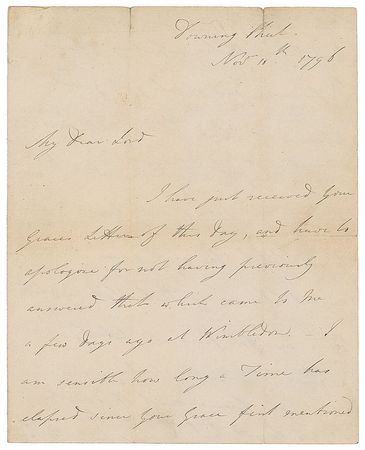 Downing Street.
Nov 11th 1796
My Dear Lord
I have just received your
Graces Letter of this day, and have to
apologize for not having previously
answered that which came to me
a few days ago at Wimbledon. – I
am sensible how long a Time has
elapsed since your Grace first mentioned